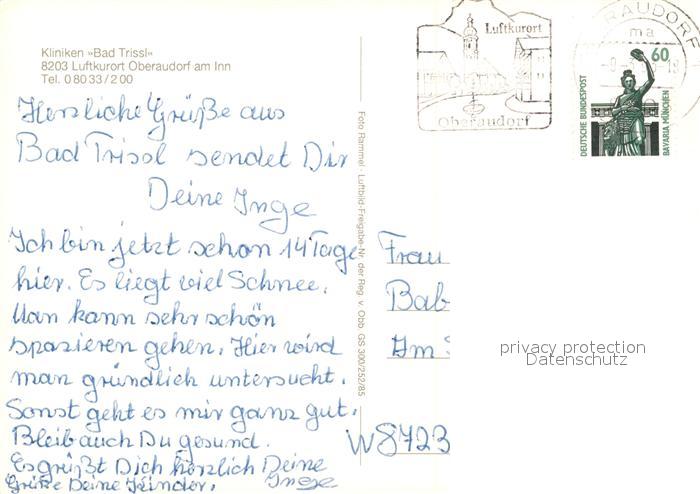 Kliniken »Bad Trissl«
8203 Luftkurort Oberaudorf am Inn
Tel. 0 80 33 / 2 00
Herzliche Grüße aus
Bad Trissl sendet Dir
Deine Inge
Ich bin jetzt schon 14 Tage
hier. Es liegt viel Schnee.
Man kann sehr schön
spazieren gehen. Hier wird
man gründlich untersucht.
Sonst geht es mir ganz gut.
Bleib auch Du gesund.
Es grüßt Dich herzlich Deine
Inge
Grüße Deine Kinder.
Foto Rammel · Luftbild-Freigabe-Nr. der Reg. v. Obb. GS 300/252/85
Luftkurort
Oberaudorf
RAUDORF
ma
60
DEUTSCHE BUNDESPOST
BAVARIA MÜNCHEN
Frau
Bab
Im
W 8723
privacy protection
Datenschutz